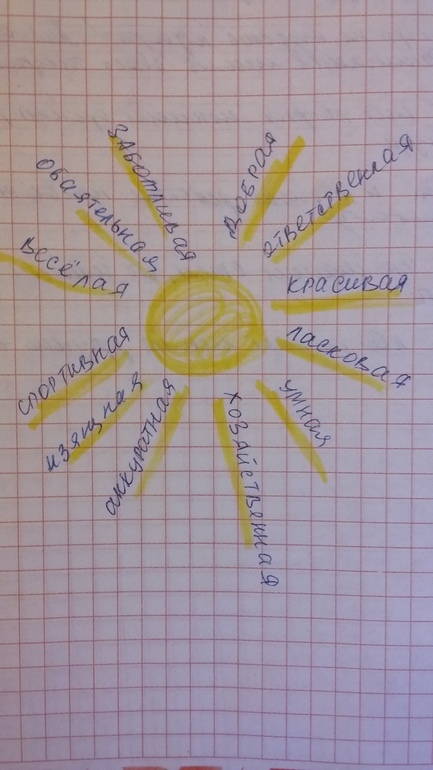 заботливая
добрая
ответственная
красивая
ласковая
умная
хозяйственная
аккуратная
изящная
спортивная
весёлая
обаятельная